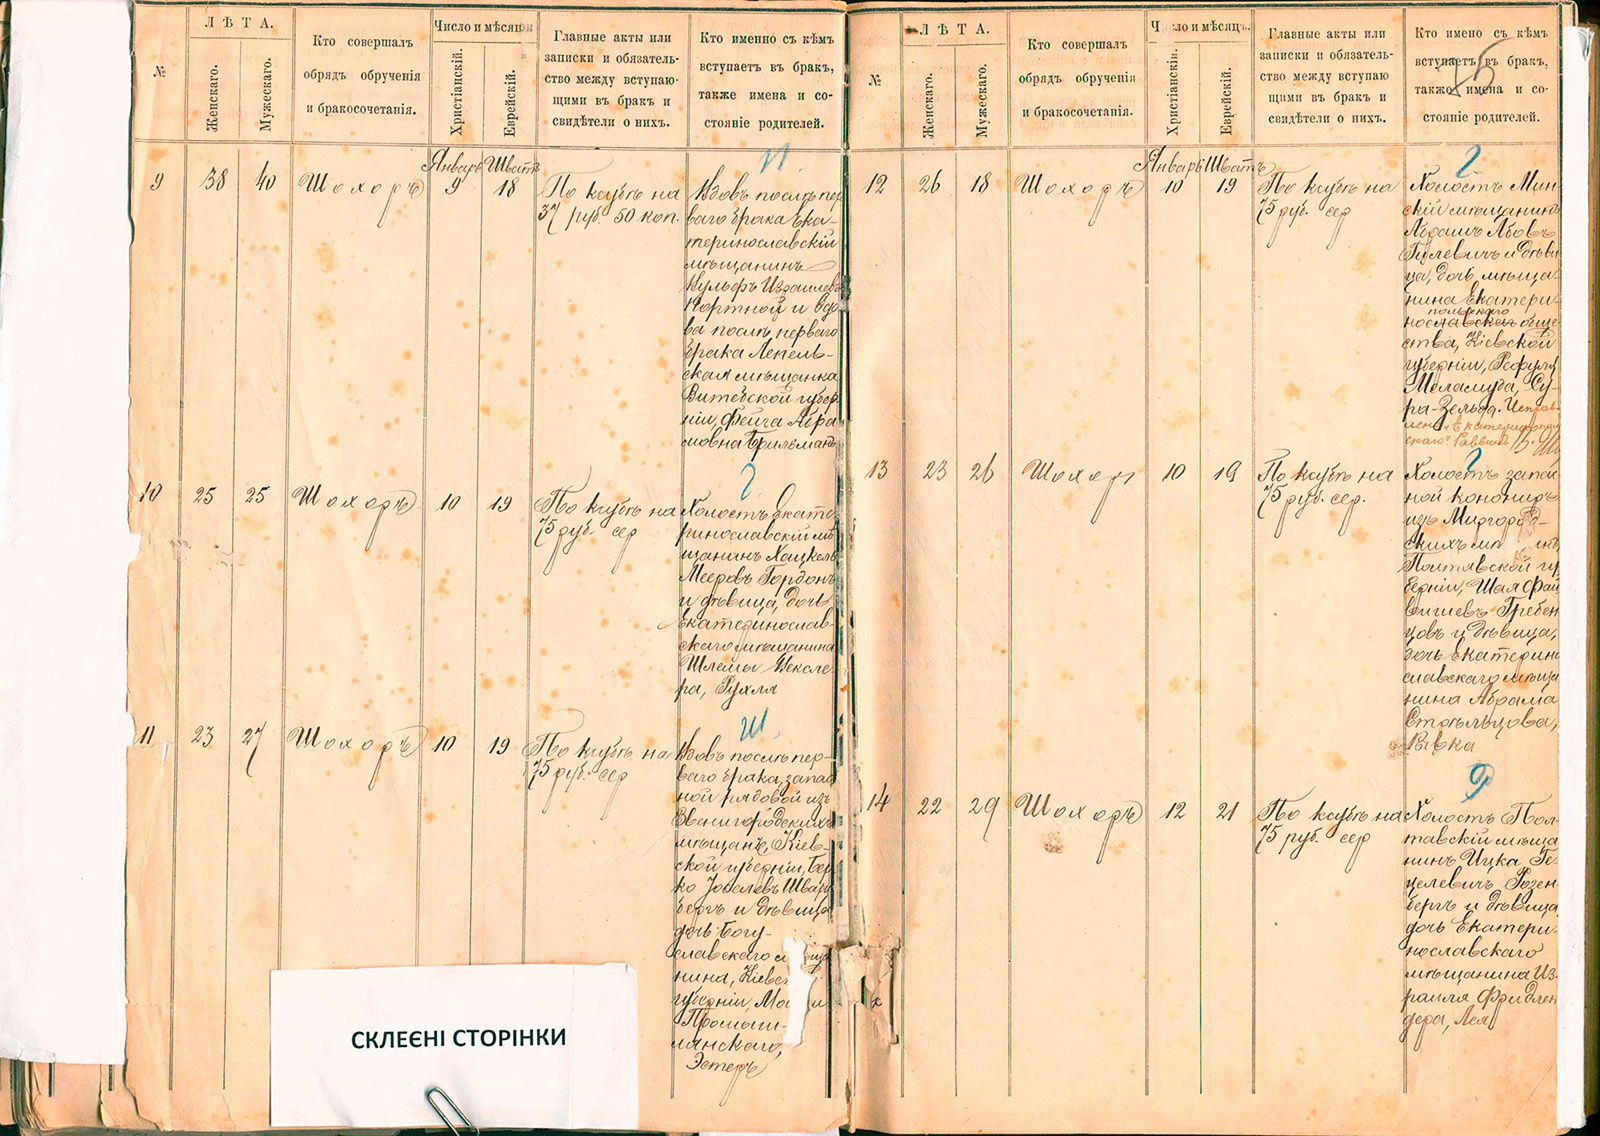 №
ЛѢТА.
Женскаго.
Мужескаго.
Кто совершалъ
обрядъ обрученія
и бракосочетанія.
Число и мѣсяцъ
Христіанскій.
Еврейскій.
Главные акты или
записки и обязатель-
ство между вступаю-
щими въ бракъ и
свидѣтели о нихъ.
Кто именно съ кѣмъ
вступаетъ въ бракъ,
также имена и со-
стояніе родителей.
Январь Шватъ
9 38 40 Шохоръ 9 18
По ктубѣ на
37 руб. 50 коп.
Вдовъ послѣ пер
ваго брака Ека-
теринославскій
мѣщанинъ
Вульфъ Израилевъ
Портной и вдо
ва послѣ перваго
брака Лепель-
ская мѣщанка
Витебской губер
ніи, Фейга Абра
мовна Брильманъ
10 25 25 Шохоръ 10 19
По ктубѣ на
75 руб. сер
Холостъ Екате
ринославскій мѣ
щанинъ Хацкель
Мееровъ Гордонъ
и дѣвица, дочь
Екатеринослав-
скаго мѣщанина
Шлемы Векслe-
ра, Рухля
11 23 27 Шохоръ 10 19
По ктубѣ на
75 руб. сер
Вдовъ послѣ пер-
ваго брака, запас
ной рядовой изъ
Звенигородскихъ
мѣщанъ, Кіев-
ской губерніи, Бер
ко Іоселевъ Швар
бергъ и дѣвица
дочь Богу-
славскаго мѣща
нина, Кіевс
губерніи, Мо
Промыш-
лянскаго,
Эстеръ
СКЛЕЄНІ СТОРІНКИ
№
ЛѢТА.
Женскаго.
Мужескаго.
Кто совершалъ
обрядъ обрученія
и бракосочетанія.
Число и мѣсяцъ.
Христіанскій.
Еврейскій.
Главные акты или
записки и обязатель-
ство между вступаю
щими въ бракъ и
свидѣтели о нихъ.
Кто имено съ кѣмъ
вступаетъ въ бракъ,
также имена и со-
стояніе родителей.
Январь Шватъ
12 26 18 Шохоръ 10 19
По ктубѣ на
75 руб. сер
Холостъ Мин
скій мѣщанинъ
Абрамъ Абовъ
Гилевичъ и дѣви
ца, дочь мѣща-
нина Екатери-
польскаго
нославскаго обще
ства, Кіевской
губерніи, Рефуля
Меламуда, Су-
ра-Зельда. Исправ-
лено "Екатеринополь
скаго" Раввинъ
13 23 26 Шохоръ 10 19
По ктубѣ на
75 руб. сер.
Холостъ запас
ной канониръ
изъ Миргород-
скихъ
Полтавской гу
берніи, Шая Фай
вишевъ Гребен
цовъ и дѣвица,
дочь Екатерино
славскаго мѣща
нина Абрама
Стрѣльцова,
Ривка
14 22 29 Шохоръ 12 21
По ктубѣ на
75 руб. сер
Холостъ Пол-
тавскій мѣща
нинъ Ицка Ге-
целевичъ Розен
бергъ и дѣвица
дочь Екатери-
нославскаго
мѣщанина Из-
раиля Фридлен
дера, Лея